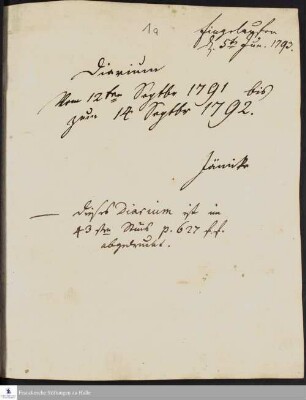 1a
Eingelaufen
d. 5ten Jun. 1793.
Diarium
Vom 12ten Septbr 1791 bis
zum 14 Septbr 1792.
Jänicke
Dieses Diarium ist im
43 sten p. 627 f.f.
abgedruckt.
Franckesche Stiftungen zu Halle